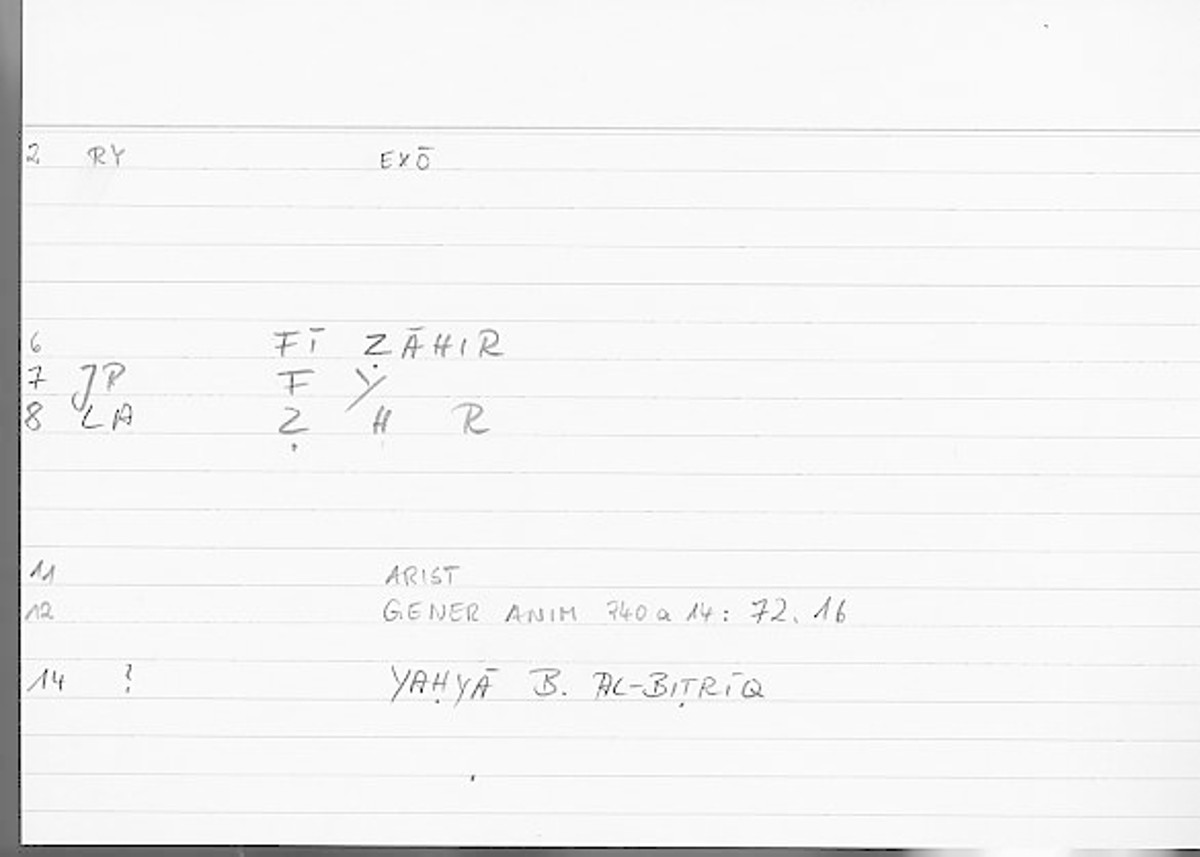 2 RY EXŌ
6 FĪ ẒĀHIR
7 JP F Y
8 LA Ẓ H R
11 ARIST
12 GENER ANIM 740 a 14: 72.16
14 ? YAḤYĀ B. AL-BIṬRĪQ